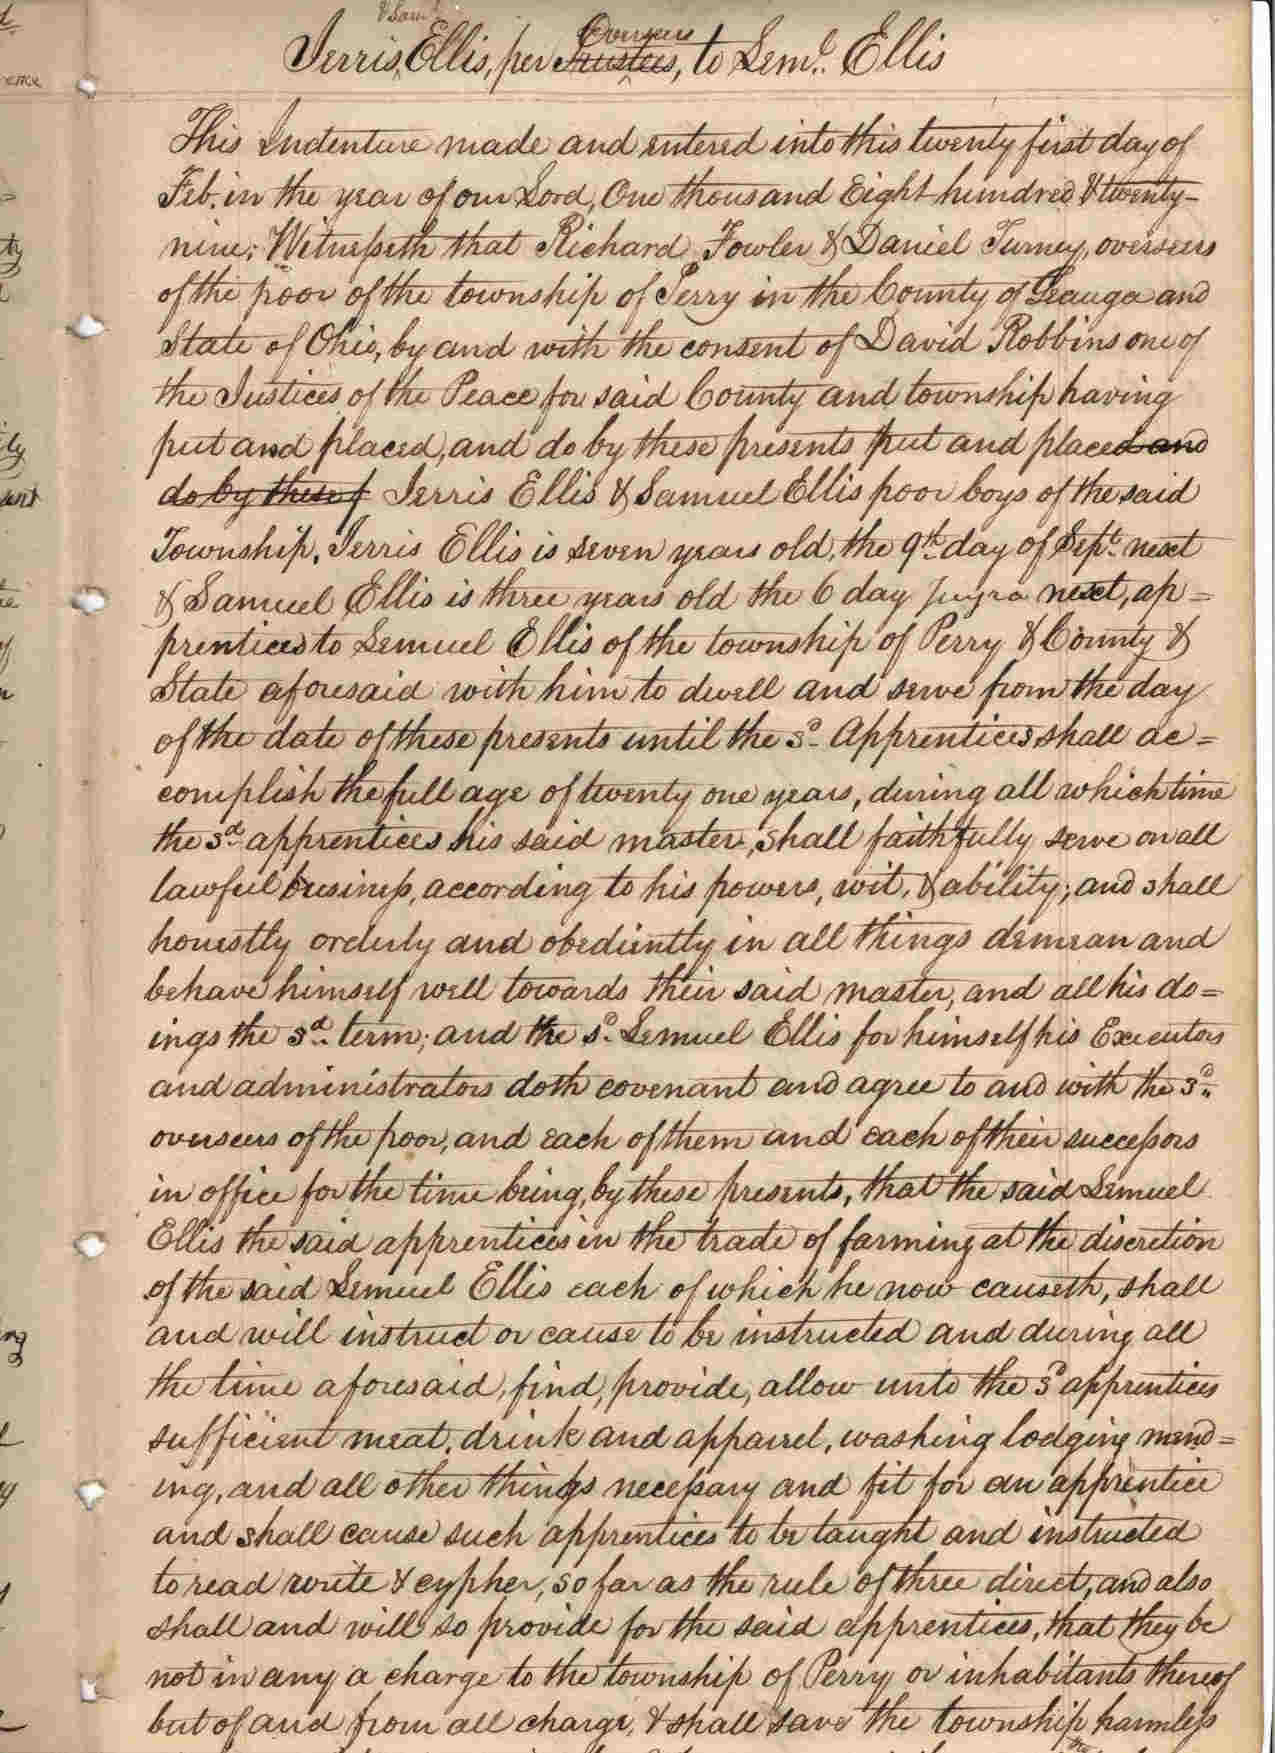 & Sam.l
Overseers
Jerris Ellis, per Trustees, to Lem.l Ellis
This Indenture made and entered into this twenty first day of
Feb. in the year of our Lord, One thousand Eight hundred & twenty-
nine; Witnesseth that Richard Fowler & Daniel Turney, overseers
of the poor of the township of Perry in the County of Geauga and
State of Ohio, by and with the consent of David Robbins one of
the Justices of the Peace for said County and township having
put and placed, and do by these presents put and placed and
do by these p Jerris Ellis & Samuel Ellis poor boys of the said
Township, Jerris Ellis is seven years old, the 9th day of Sept. next
& Samuel Ellis is three years old the 6 day next, ap=
prentices to Lemuel Ellis of the township of Perry & County &
State aforesaid with him to dwell and serve from the day
of the date of these presents until the sd. Apprentices shall ac=
complish the full age of twenty one years, during all which time
the sd. apprentices his said master, shall faithfully serve on all
lawful business, according to his powers, wit, & ability; and shall
honestly orderly and obediently in all things demean and
behave himself well towards their said master, and all his do=
ings the sd. term; and the sd. Lemuel Ellis for himself his Executors
and administrators doth covenant and agree to and with the sd.
overseers of the poor, and each of them and each of their successors
in office for the time being, by these presents, that the said Lemuel
Ellis the said apprentices in the trade of farming at the discretion
of the said Lemuel Ellis each of which he now causeth, shall
and will instruct or cause to be instructed and during all
the time aforesaid, find, provide, allow unto the sd apprentices
sufficient meat, drink and apparel, washing lodging mend=
ing, and all other things necessary and fit for an apprentice
and shall cause such apprentices to be taught and instructed
to read write & cypher, so far as the rule of three direct, and also
shall and will so provide for the said apprentices, that they be
not in any a charge to the township of Perry or inhabitants thereof
but of and from all charge, & shall save the township harmless